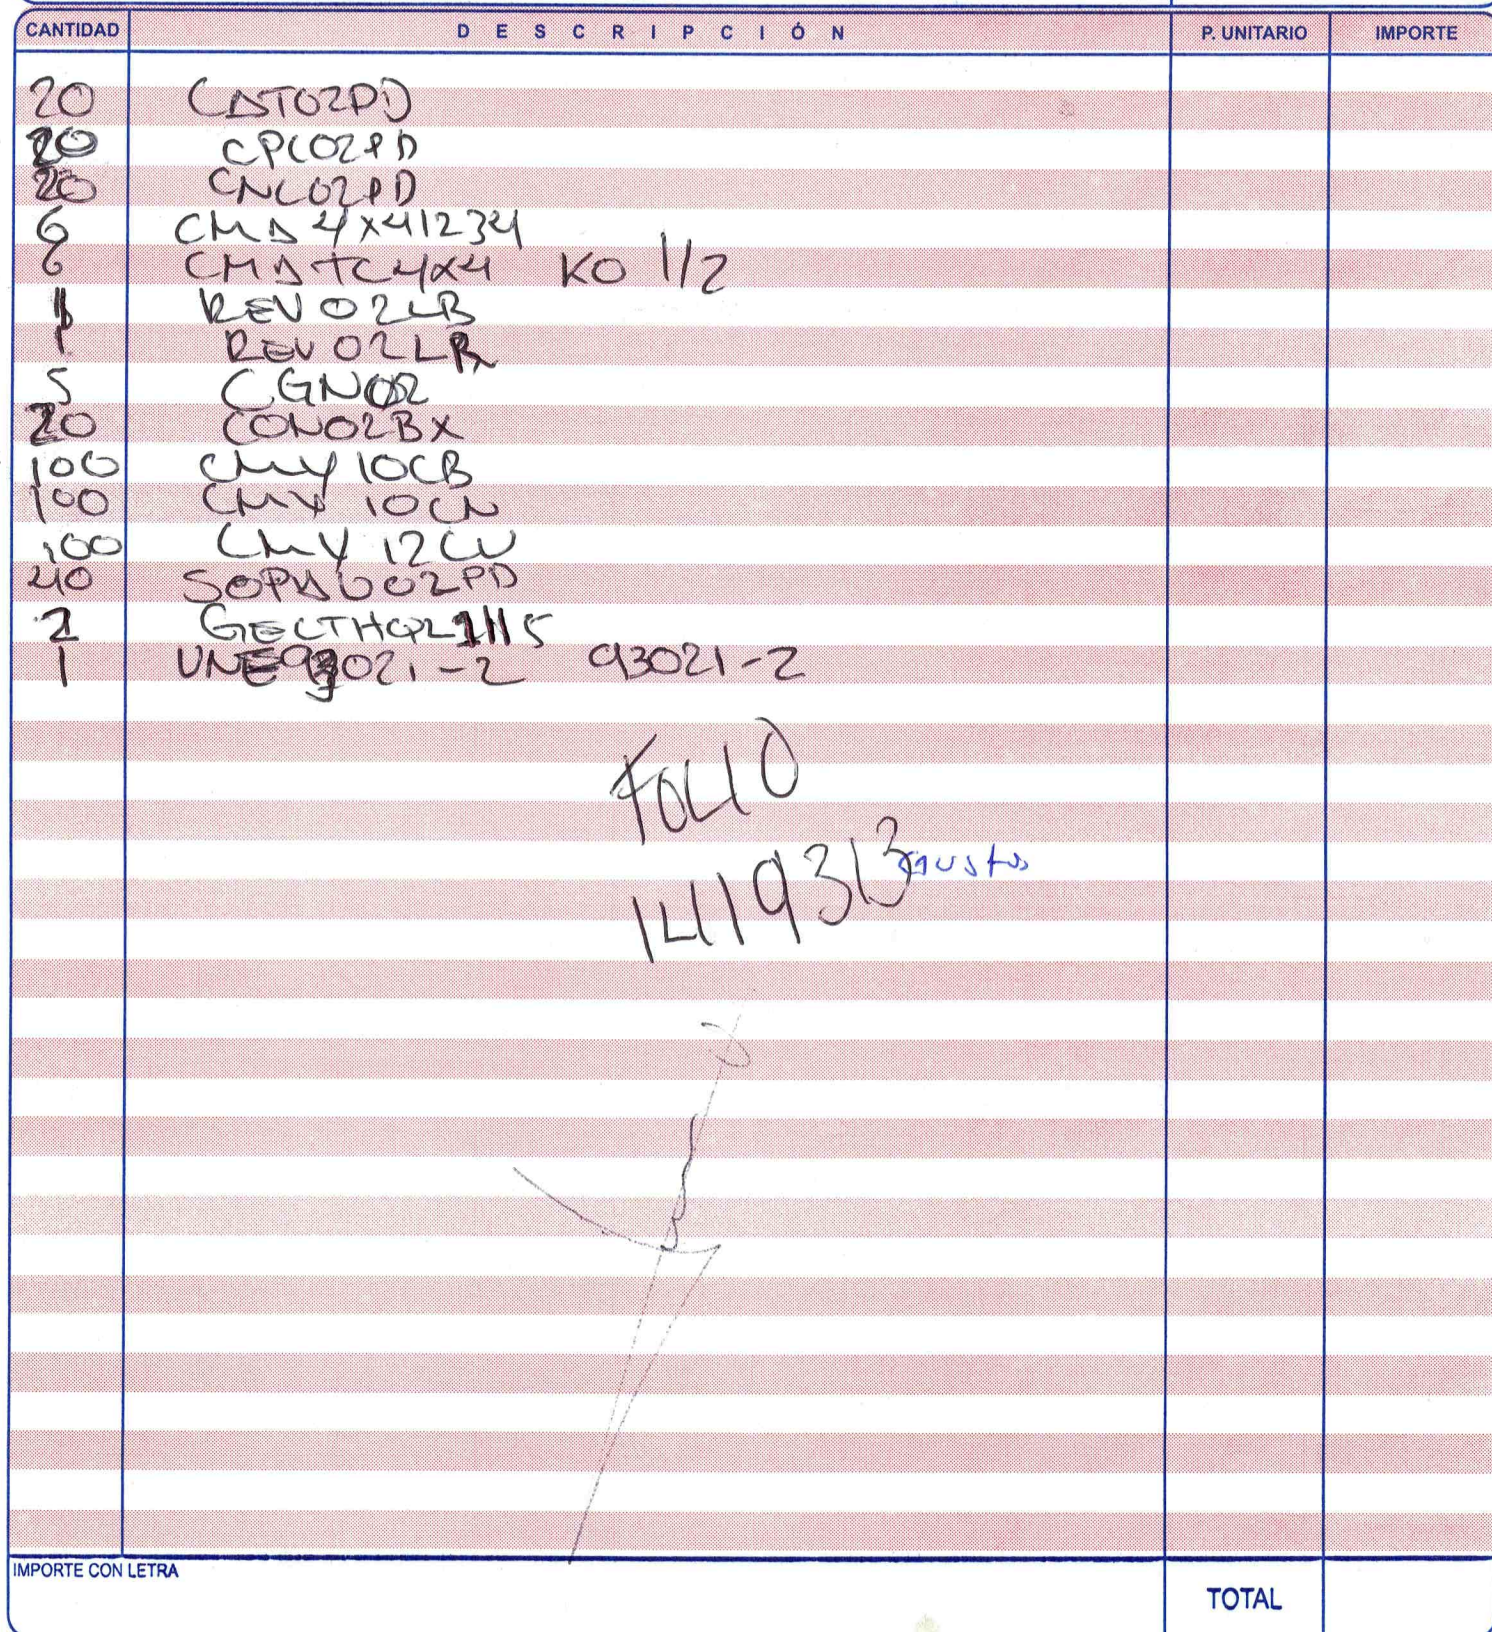 CANTIDAD DESCRIPCIÓN P. UNITARIO IMPORTE
20 CATO2PD
20 CPC02PD
20 CNC02PD
6 CMA 4X41234
6 CMATC4X4 KO 1/2
1 REV02LB
1 REV02LR
5 CGN02
20 CON02BX
100 CMY 10CB
100 CMY 10CN
100 CMY 12CV
40 SOPAU02PD
2
1 UNE93021-2 93021-2
FOLIO
1419313
IMPORTE CON LETRA
TOTAL